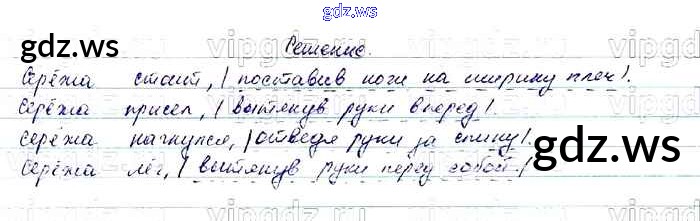 gdz.ws
gdz.ws
Решение.
Серёжа стоит, | поставив ноги на ширину плеч |.
Серёжа присел, | вытянув руки вперёд |.
Серёжа нагнулся, | отведя руки за спину |.
Серёжа лёг, | вытянув руки перед собой. |
gdz.ws